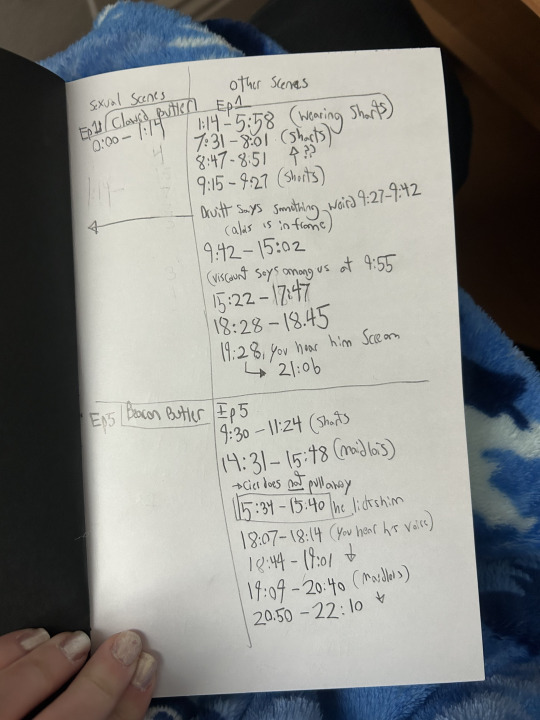 Sexual Scenes
other Scenes
Ep1 Clawed Butler
0:00 - 1:14
Ep 1
1:14 - 5:58 (wearing shorts)
7:31 - 8:01 (shorts)
8:47 - 8:51 ↑??
9:15 - 9:27 (shorts)
Druitt says something weird 9:27-9:42
(alois is in frame)
9:42 - 15:02
(viscount says among us at 9:55
15:22 - 17:47
18:28 - 18.45
19:28, you hear him scream
↳ 21:06
Ep5 Beacon Butler
Ep5
9:30 - 11:24 (shorts
14:31 - 15:48 (maidlois)
→ Ciel does not pull away
15:34 - 15:40 he licks him
18:07-18:14 (you hear his voice)
18:44 - 19:01 ↓
19:09 - 20:40 (maidlois)
20.50 - 22:10 ↓